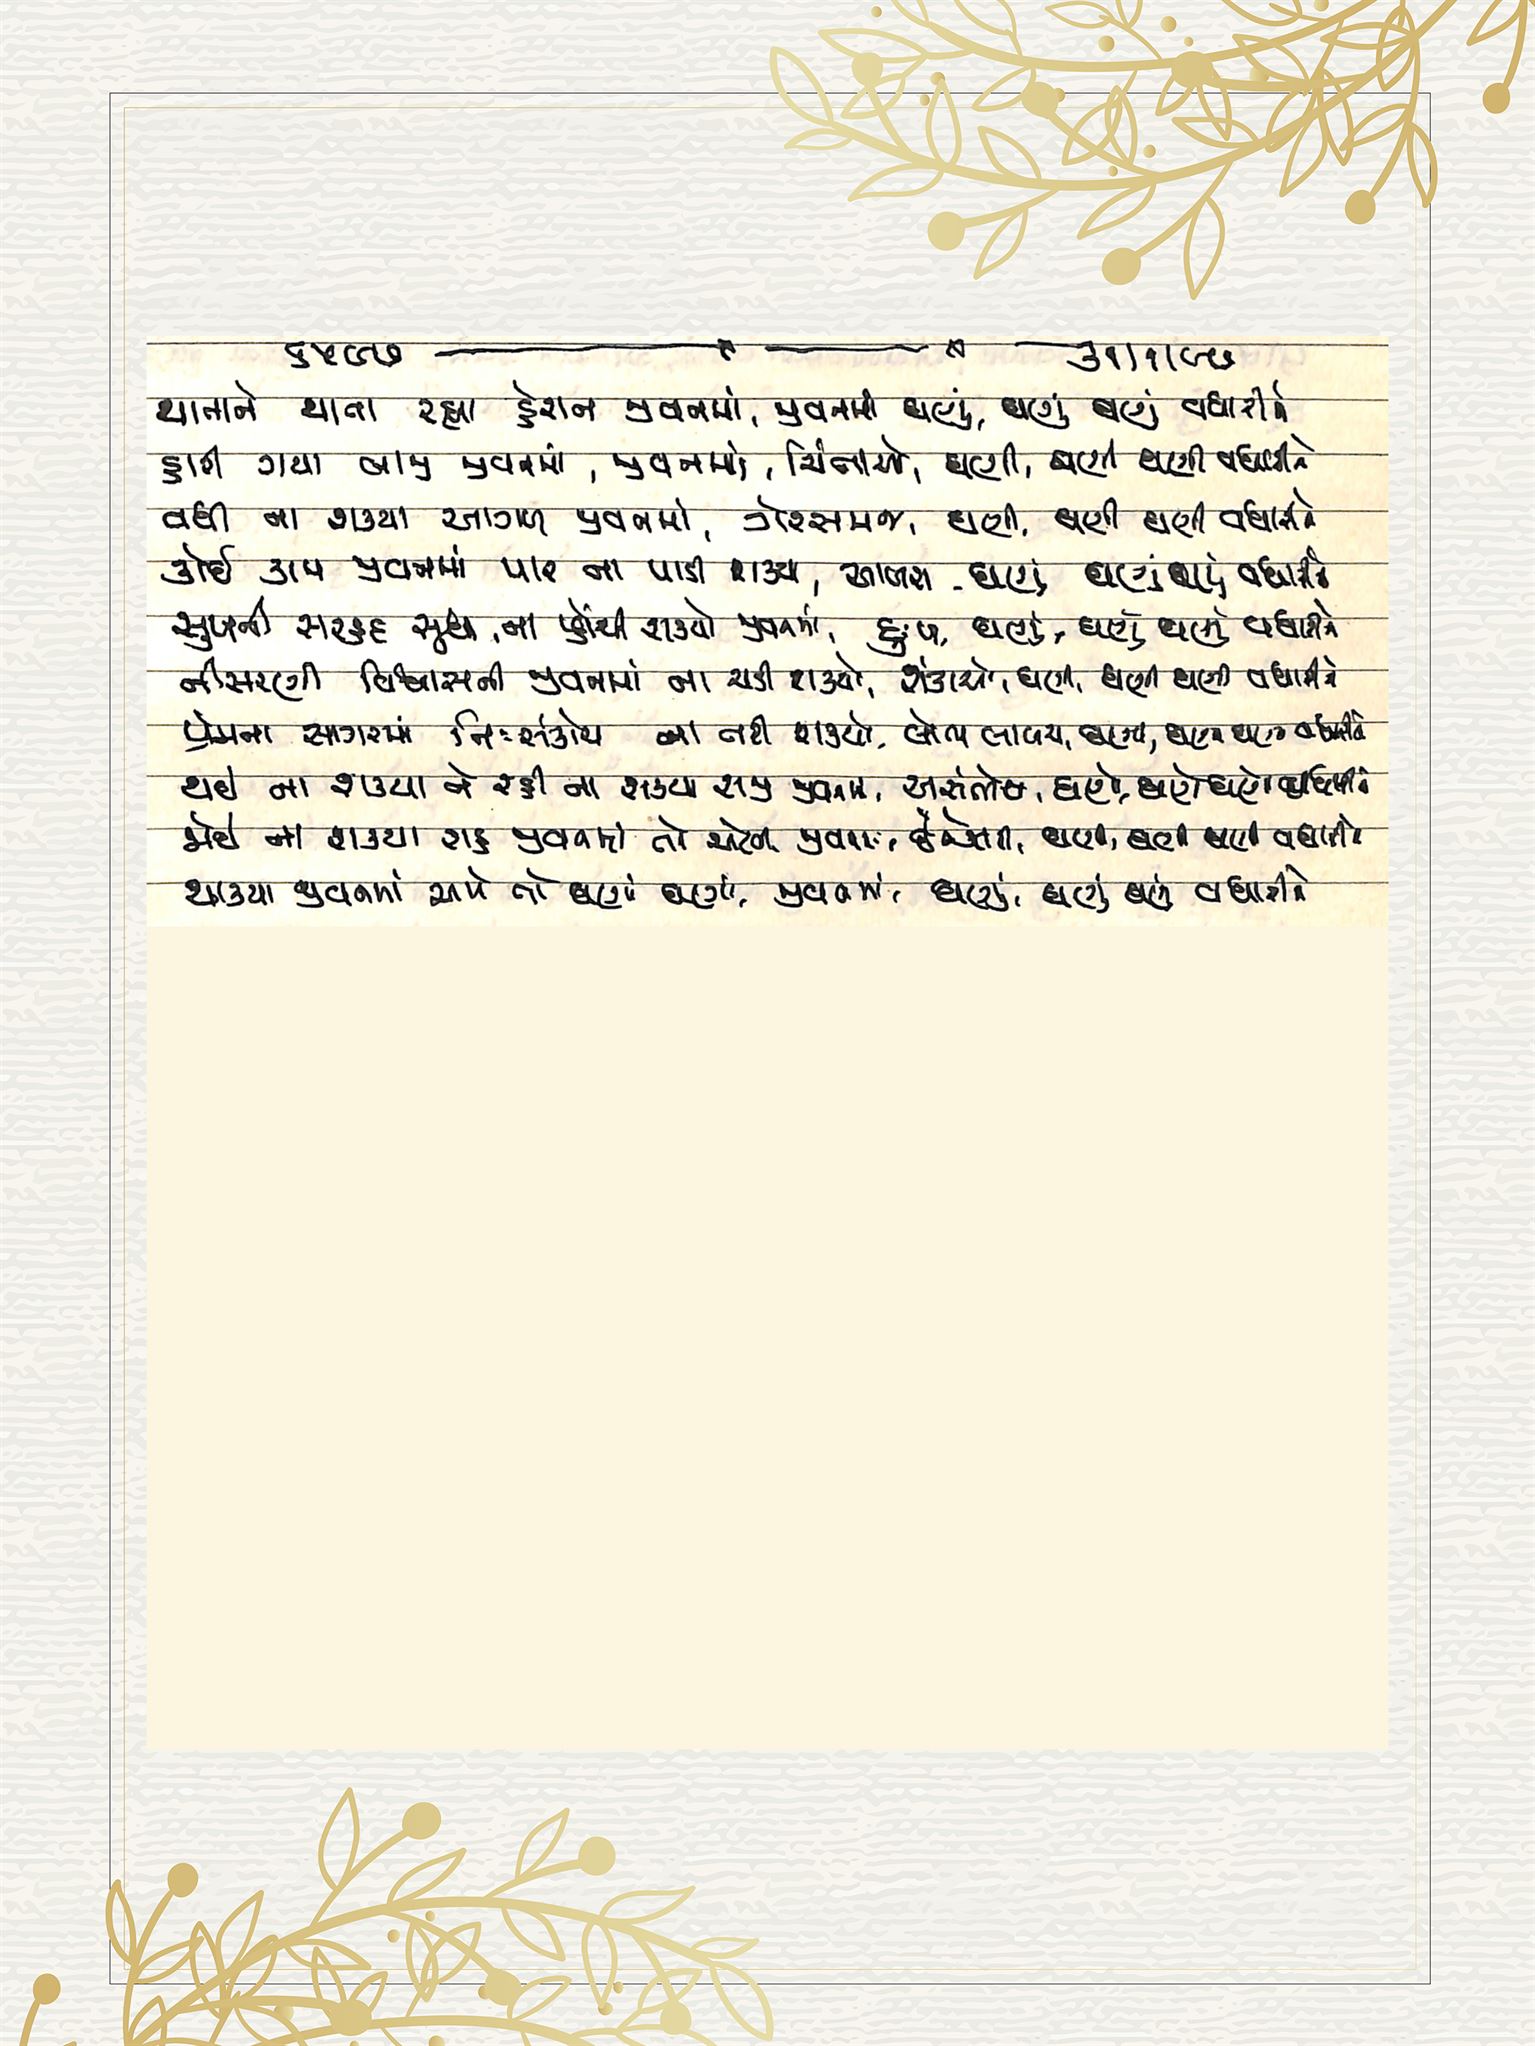 ૬૫૯૭ ૩૧/૧/૯૭
થાતાને થાતા રહ્યા હેરાન જીવનમાં, જીવનમાં ઘણું, ઘણું ઘણું વધારીને
હારી ગયા બાજી જીવનમાં, જીવનમાં, ચિંતાઓ, ઘણી, ઘણી ઘણી વધારીને
વધી ના શક્યા આગળ જીવનમાં, ગેરસમજ, ઘણી, ઘણી ઘણી વધારીને
કોઈ કામ જીવનમાં પાર ના પાડી શક્યા, આળસ - ઘણું ઘણું ઘણું વધારીને
સુખની સરહદ સુધી, ના પહોંચી શક્યો જીવનમાં, દુઃખ, ઘણું, ઘણું ઘણું વધારીને
નીસરણી વિશ્વાસની જીવનમાં ના ચડી શક્યો, શંકાઓ, ઘણી, ઘણી ઘણી વધારીને
પ્રેમના સાગરમાં નિઃસંકોચ ના તરી શક્યો, લોભ લાલચ, ઘણા, ઘણા ઘણા વધારીને
થઈ ના શક્યા ને રહી ના શક્યા રાજી જીવનમાં, અસંતોષ, ઘણો, ઘણો ઘણો વધારીને
જોઈ ના શક્યા રાહ જીવનમાં તો જીવનમાં, ઘણી, ઘણી ઘણી વધારીને
થાક્યા જીવનમાં અમે તો ઘણાં ઘણાં, જીવનમાં, ઘણું, ઘણું ઘણું વધારીને